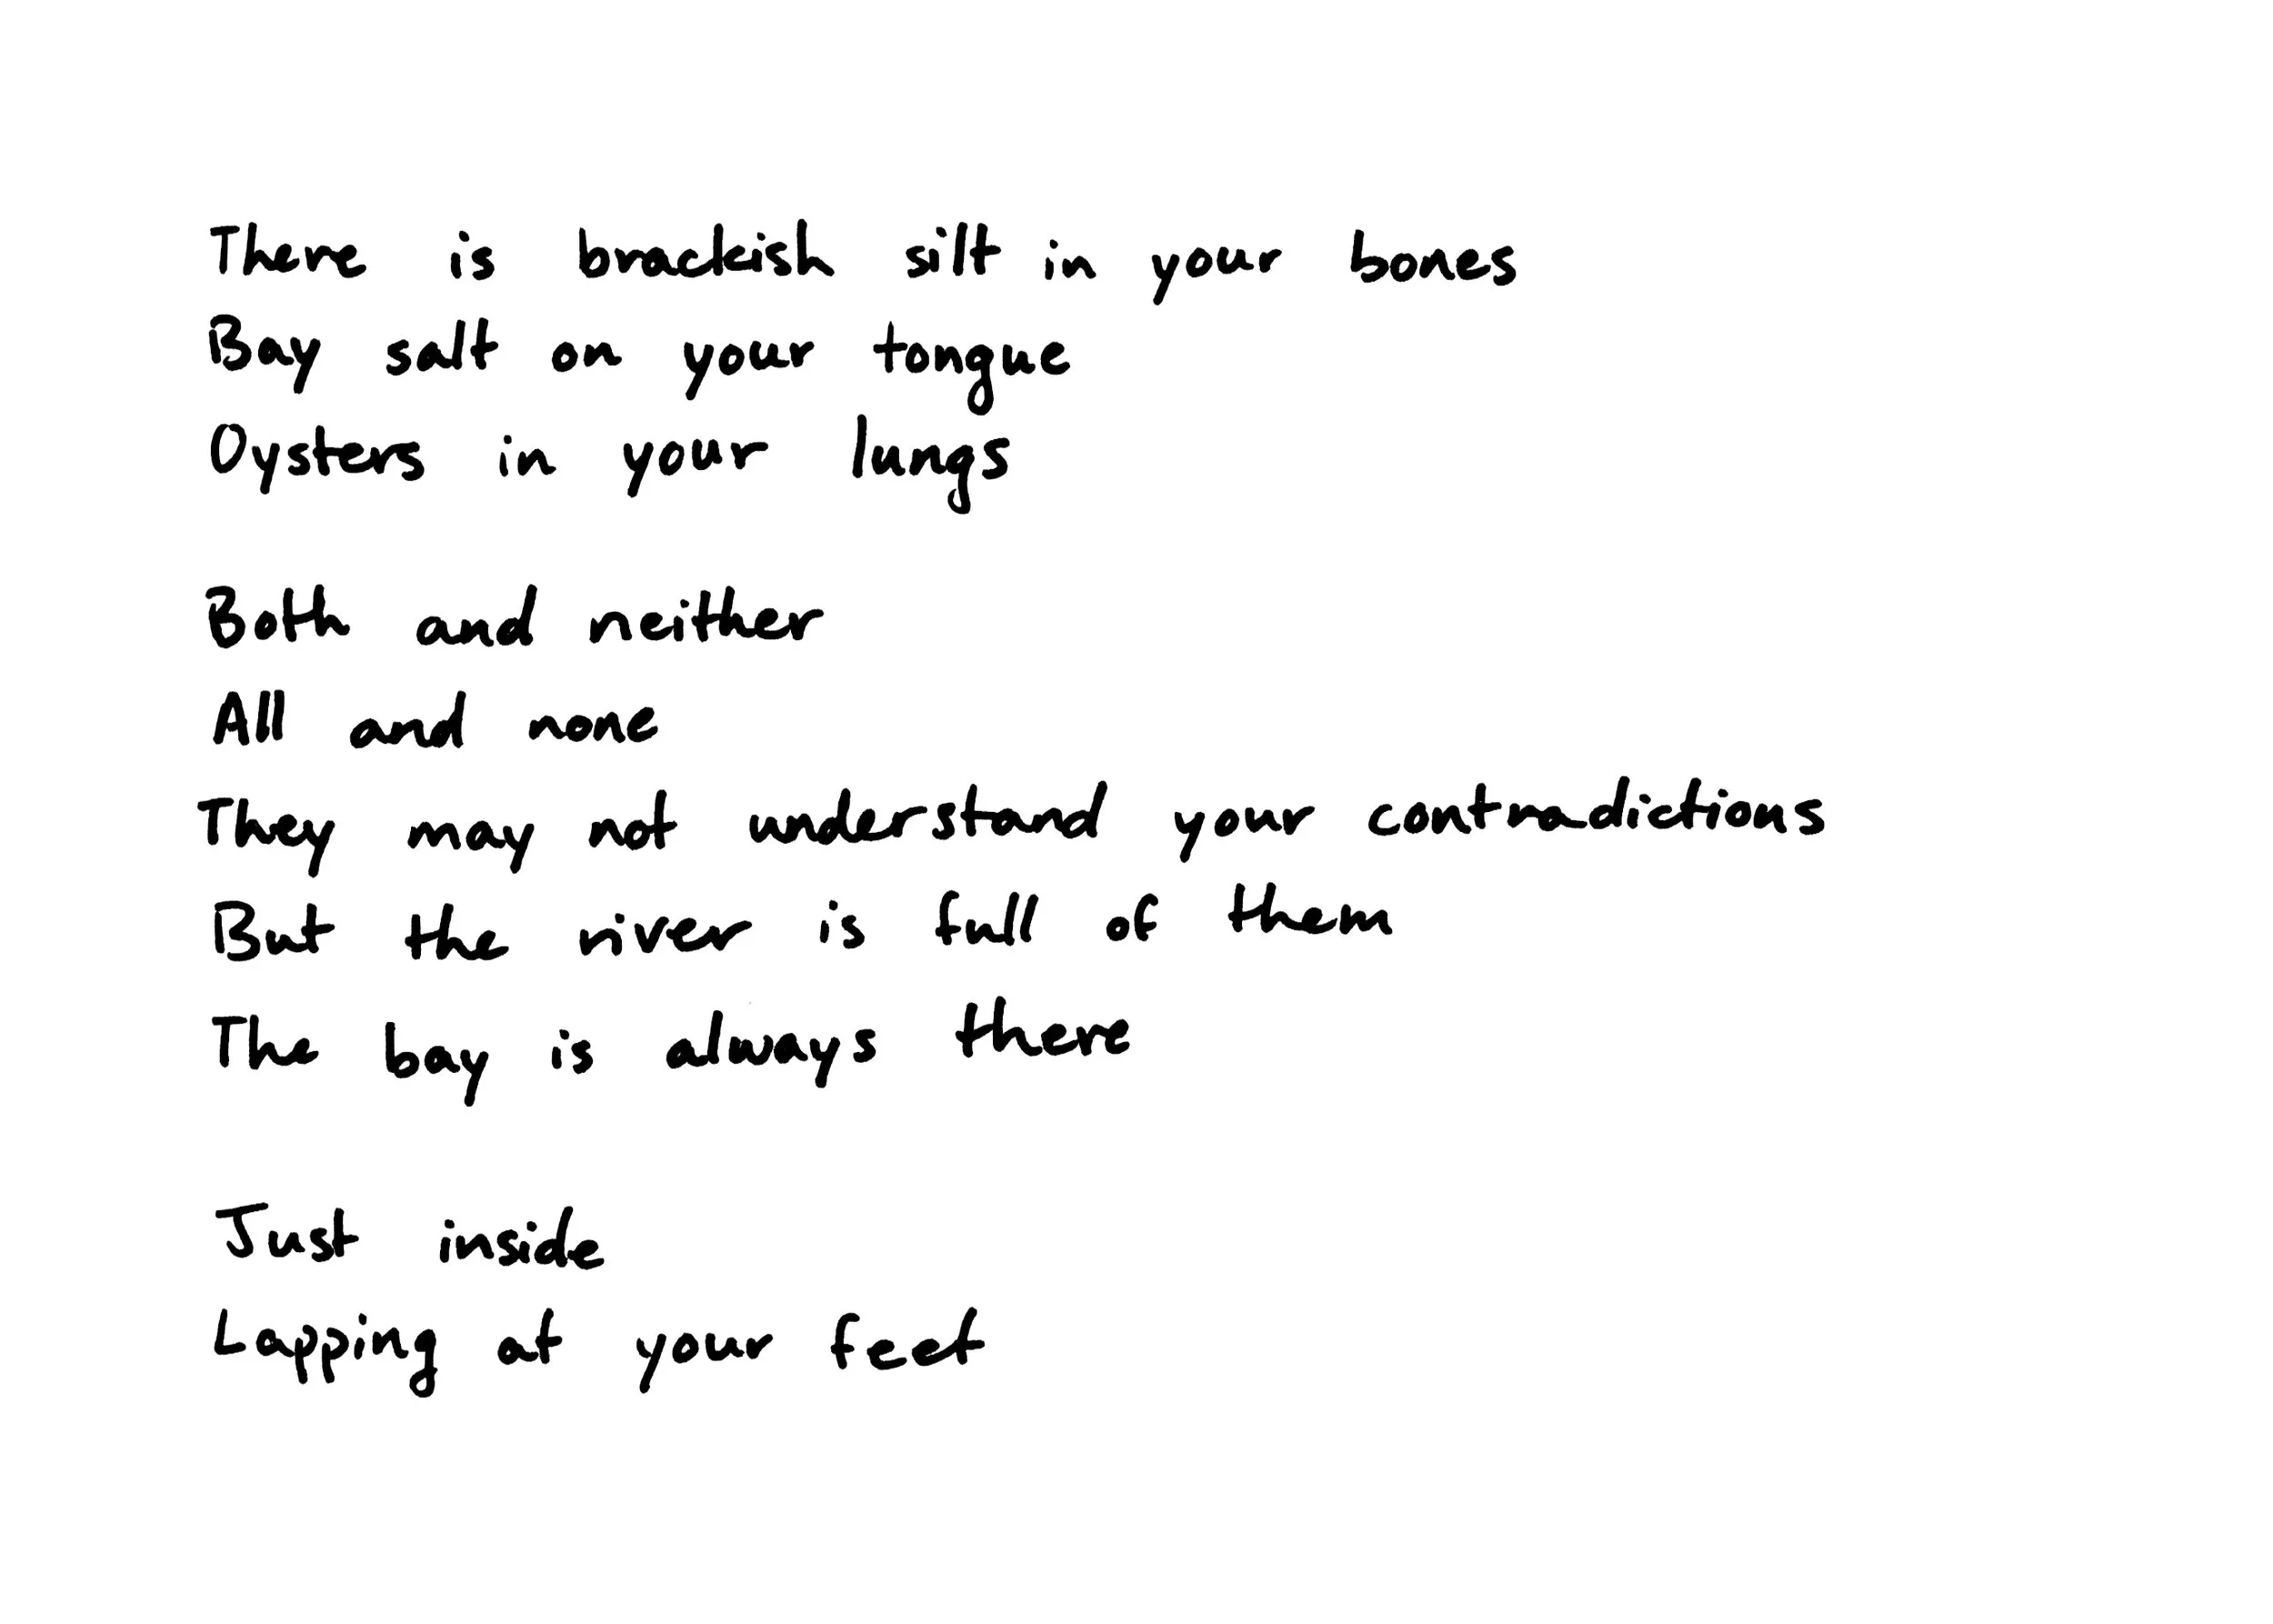 There is brackish silt in your bones
Bay salt on your tongue
Oysters in your lungs
Both and neither
All and none
They may not understand your contradictions
But the river is full of them
The bay is always there
Just inside
Lapping at your feet